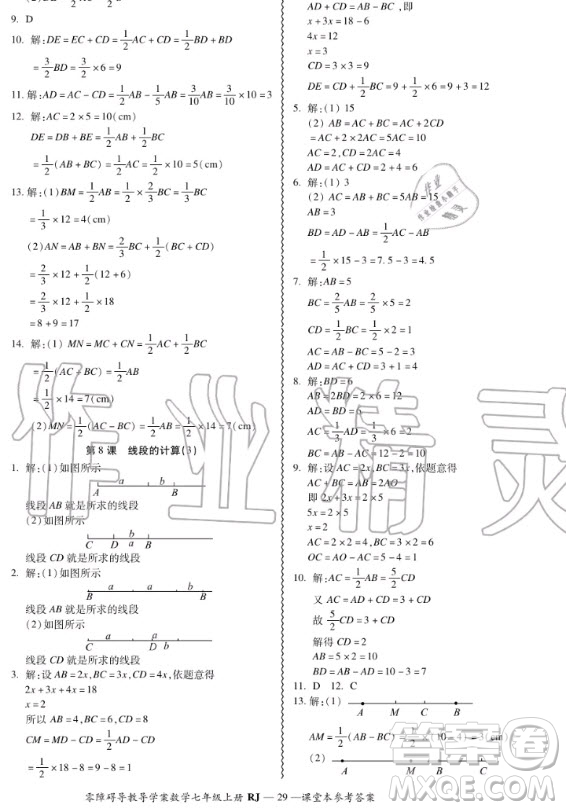 9. D
10. 解:DE=EC+CD=1/2AC+1/2CD=1/2BD+BD
=3/2BD=3/2×6=9
11. 解:AD=AC-CD=1/2AB-1/5AB=3/10AB=3/10×10=3
12. 解:AC=2×5=10(cm)
DE=DB+BE=1/2AB+1/2BC
=1/2(AB+BC)=1/2AC=1/2×10=5(cm)
13. 解:(1)BM=1/2AB=1/2×2/3BC
=1/3×12=4(cm)
(2)AN=AB+BN=2/3BC+1/2(BC+CD)
=2/3×12+1/2(12+6)
=2/3×12+1/2×18
=8+9=17
14. 解:(1) MN=MC+CN=1/2AC+1/2BC
=1/2(AC+BC)=1/2AB
=1/2×14=7(cm)
(2)MN=1/2(AC-BC)=1/2AB=1/2×14=7(cm)
第8课 线段的计算(3)
1. 解:(1)如图所示
a b
A B
线段AB就是所求的线段
(2)如图所示
b
C D a B
线段CD就是所求的线段
2. 解:(1)如图所示
a a b
A B
线段AB就是所求的线段
(2)如图所示
a a
C D b
线段CD就是所求的线段
3. 解:设AB=2x,BC=3x,CD=4x,依题意得
2x+3x+4x=18
x=2
所以AB=4,BC=6,CD=8
CM=MD-CD=1/2AD-CD=
1/2×18-8=1
AD+CD=AB-BC,即
x+3x=18-6
4x=12
x=3
CD=3×3=9
DE=CD+1/2BC=9+1/2×6=9+3=12
5. 解:(1) 15
(2) AB=AC+BC=AC+2CD
=AC+2×2AC=5AC=10
AC=2,CD=2AC=4
AD=AC+CD=2+4=6
6. 解:(1) 3
(2) AC=AB+BC=5AB=15
AB=3
BD=AD-AB=1/2AC-AB
=1/2×15-3=7.5-3=4.5
7. 解:AB=5
BC=2/5AB=2/5×5=2
CD=1/2BC=1/2×2=1
AC=AB-BC=5-2=3
AD=AC+CD=3+1=4
8. 解:BD=6
AB=2BD=2×6=12
AD=BD=6
AC=1/3AD=1/3×6=2
BC=AB-AC=12-2=10
9. 解:设AC=2x,BC=3x,依题意得
AC+BC=AB=2AO
即2x+3x=2×5
5x=2×5
x=2
AC=2×2=4,BC=3×2=6
OC=AO-AC=5-4=1
10. 解:AC=1/2AB=5/2CD
又AC=AD+CD=3+CD
故5/2CD=3+CD
解得CD=2
AB=5CD=5×2=10
BD=AB-AD=10-3=7
11. D 12. C
13. 解:(1)
A M C B
AM=1/2(AB-BC)=1/2×(10-4)=3(cm)
(2)
A M B C
零障碍导教导学案数学七年级上册 RJ —29—课堂本参考答案
作业精灵